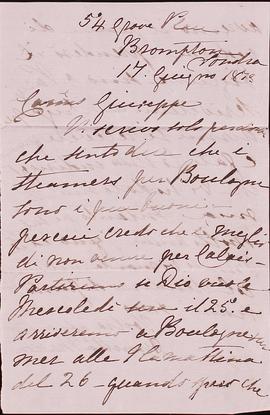 54 Grove Place
Brompton
Londra
17. Giugno 1878
Carino Giuseppe
Vi scrivo solo per dirvi
che sento dire che i
steamers per Boulogne
sono i più buoni
perciò credo che è meglio
di non venire per Calais -
Partiremo se Dio vuole
Mercoledì sera il 25. e
arriveremo a Boulogne
alle mattina
del 26 - quando spero che